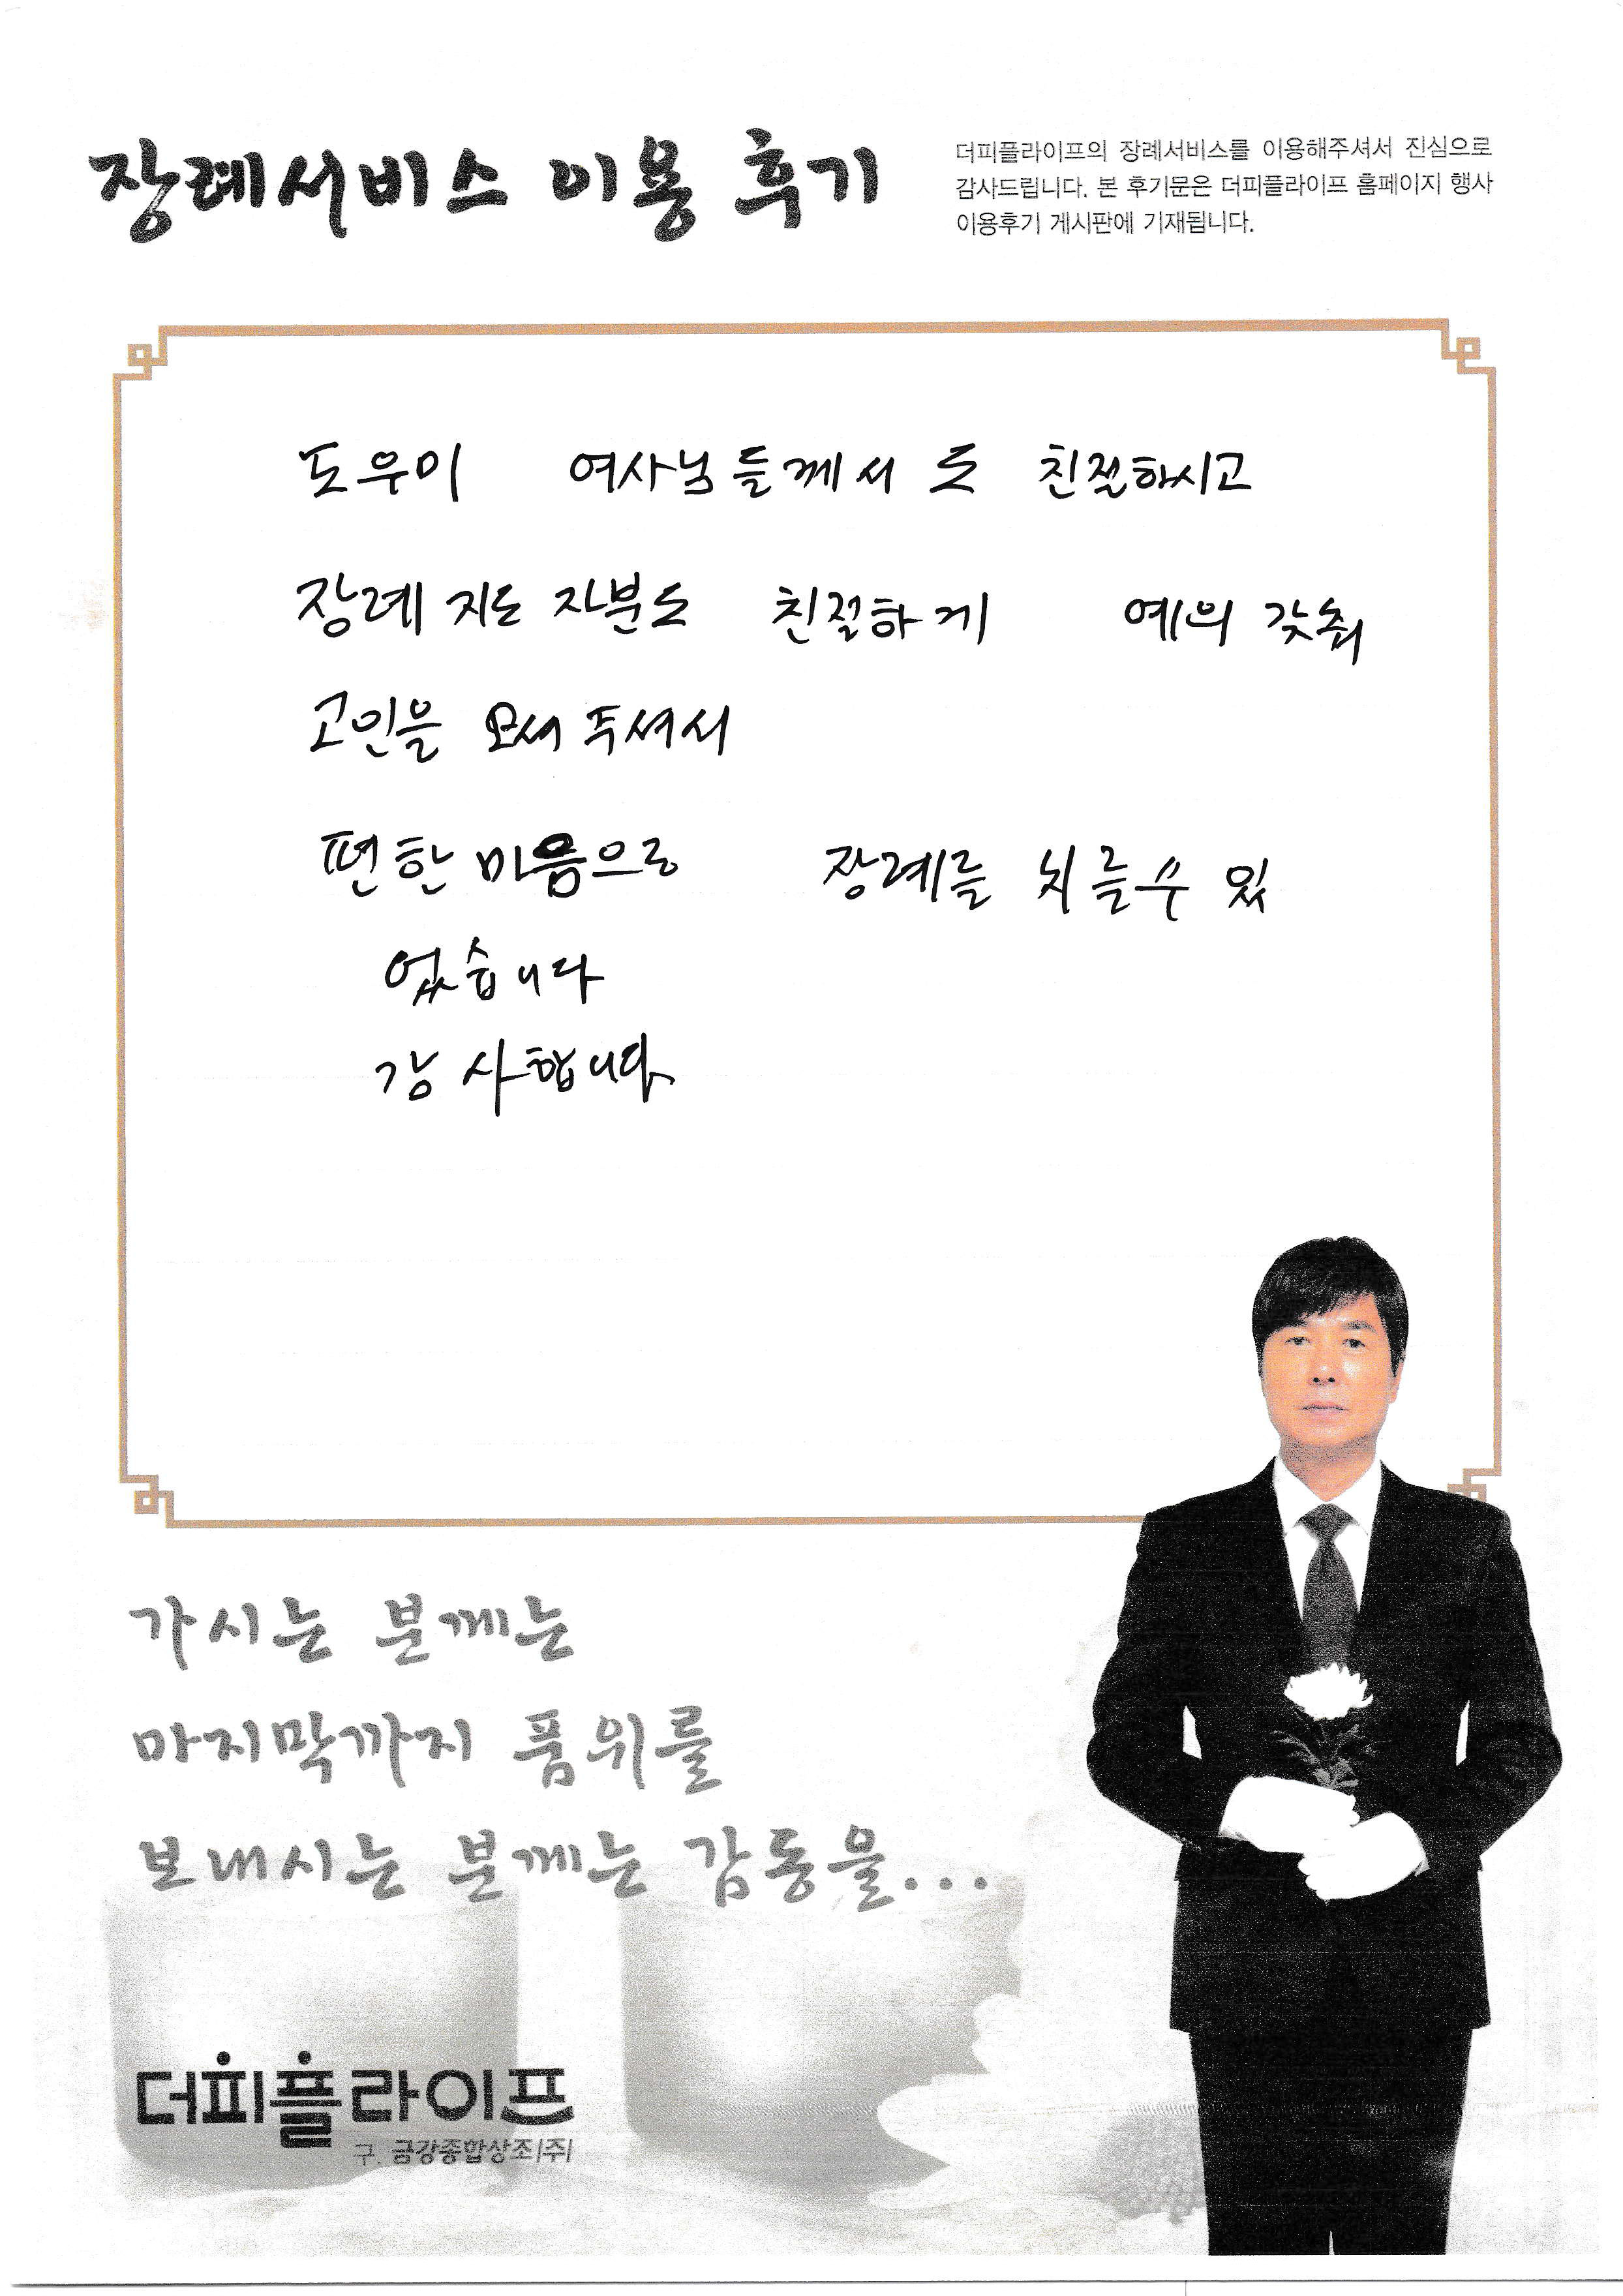 장례서비스 이용 후기
더피플라이프의 장례서비스를 이용해주셔서 진심으로
감사드립니다. 본 후기문은 더피플라이프 홈페이지 행사
이용후기 게시판에 기재됩니다.
도우미 여사님들께서도 친절하시고
장례 지도 자분도 친절하게 예의 갖춰
고인을 모셔 주셔서
편한 마음으로 장례를 치를수 있
었습니다
감사합니다
가시는 분께는
마지막까지 품위를
보내시는 분께는 감동을...
더피플라이프
구. 금강종합상조(주)